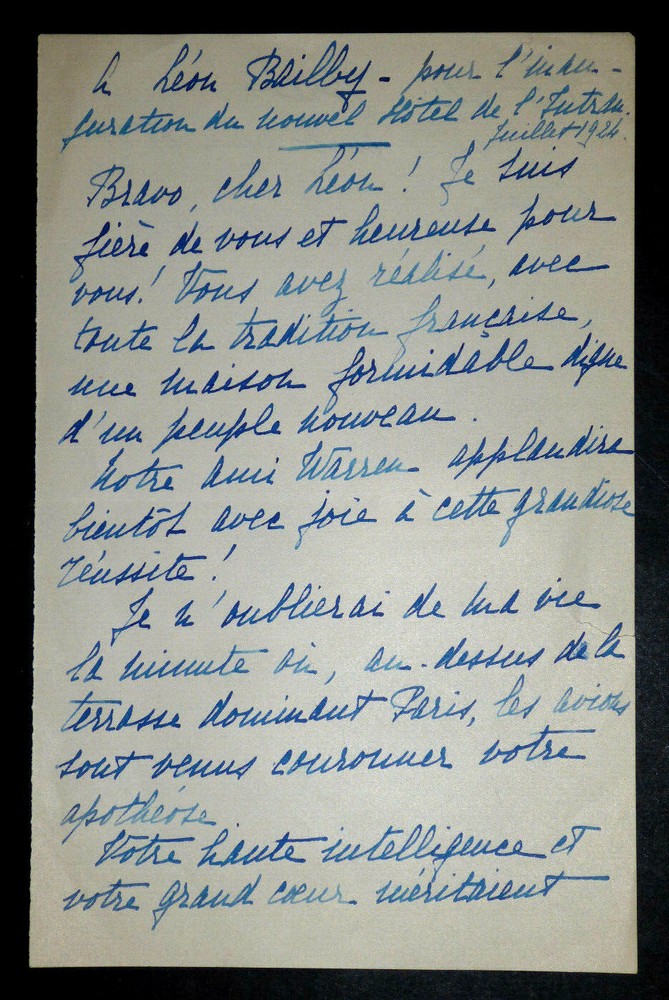 A Léon Bailby - pour l'inau-
guration du nouvel Hôtel de l'Intran.
Juillet 1924.
Bravo, cher Léon ! Je suis
fière de vous et heureuse pour
vous ! Vous avez réalisé, avec
toute la tradition française,
une maison formidable digne
d'un peuple nouveau.
Notre ami Warren applaudira
bientôt avec joie à cette grandiose
réussite !
Je n'oublierai de ma vie
la minute où, au-dessus de la
terrasse dominant Paris, les avions
sont venus couronner votre
apothéose
Votre haute intelligence et
votre grand cœur méritaient